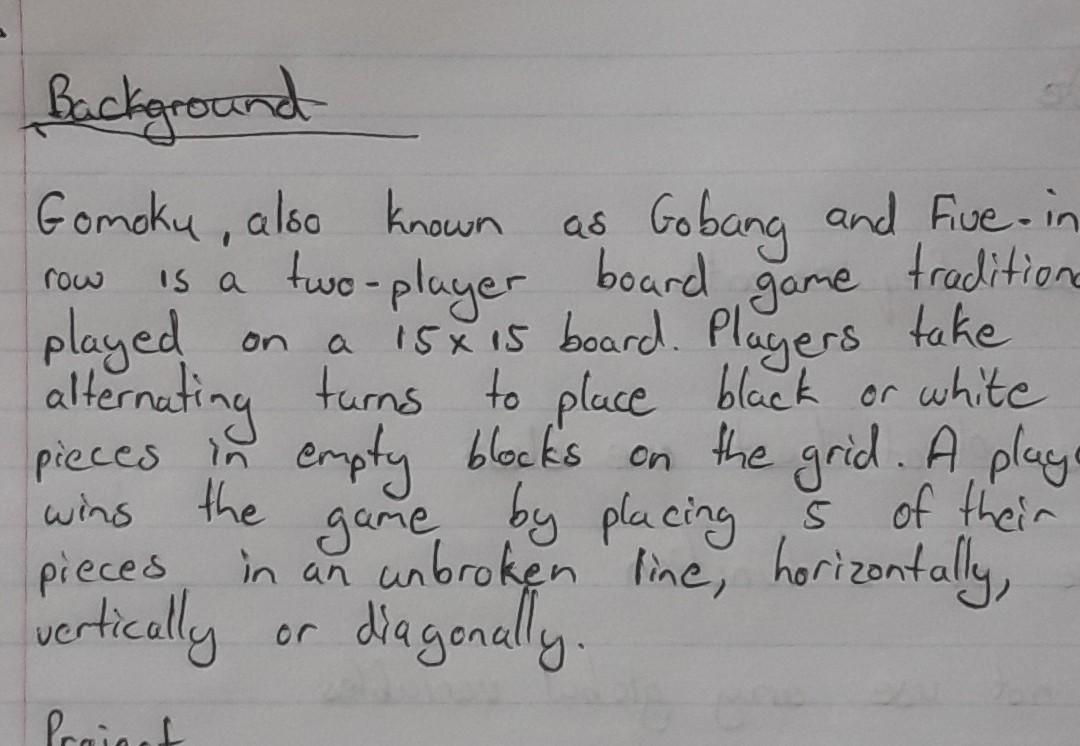 Background
Gomoku, also known as Gobang and Five-in
row is a two-player board game tradition
played on a 15x15 board. Players take
alternating turns to place black or white
pieces in empty blocks on the grid. A play
wins the game by placing 5 of their
pieces in an unbroken line, horizontally,
vertically or diagonally.
Project